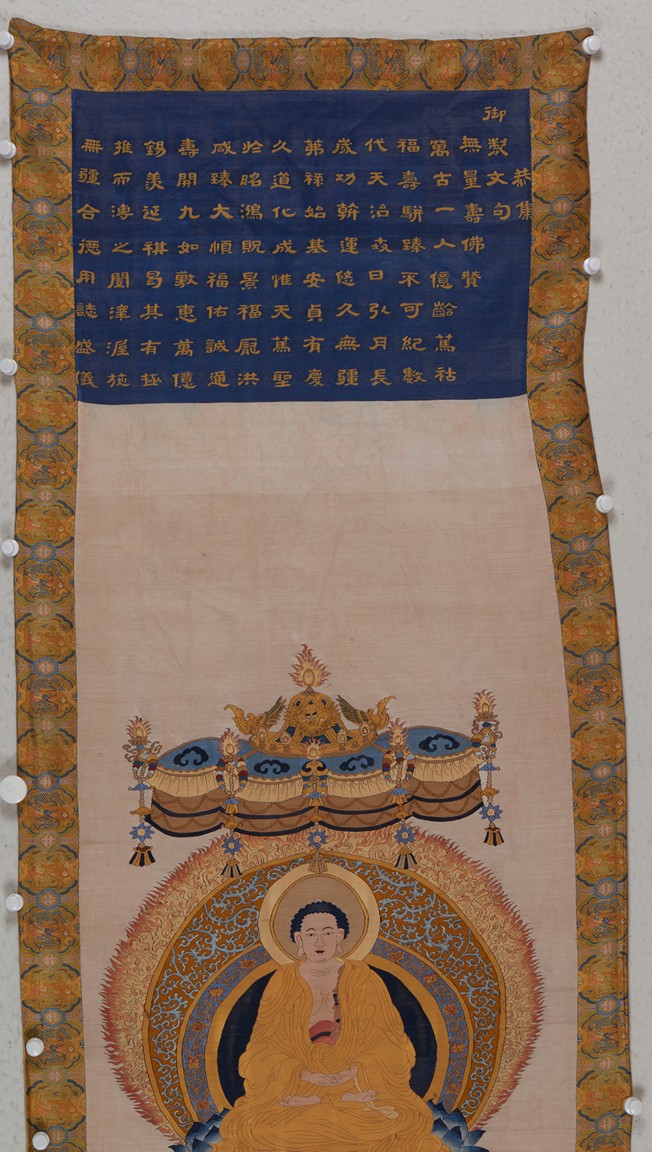 恭集
御製文句
無量壽佛贊
萬古一人億齡篤祜
福壽駢臻不可紀數
代天治日引月長
歲功斡運悠久無疆
茀祿紹基安貞有慶
久道化成惟天篤聖
於昭鴻貺景福龐洪
咸臻大順福佑誠通
壽開九如敷惠萬億
錫羨延祺曷其有極
推而溥之闓澤渥施
無疆合德用誌盛儀